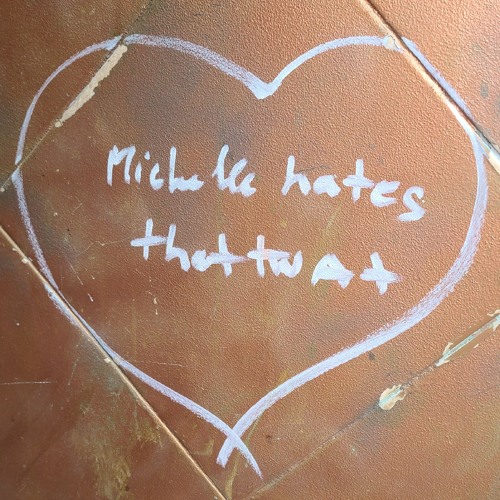 Michelle hates
that twat